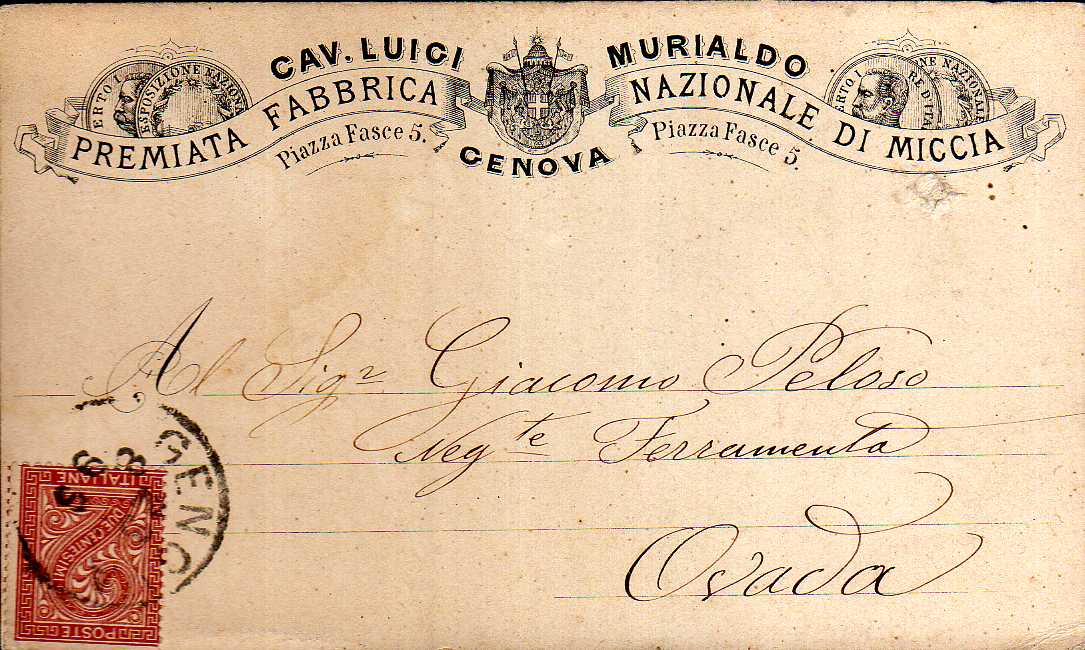 CAV. LUIGI MURIALDO
PREMIATA FABBRICA NAZIONALE DI MICCIA
Piazza Fasce 5. Piazza Fasce 5.
GENOVA
ERTO I
ESPOSIZIONE NAZION
ERTO I RE D'ITA
NE NAZIONALE
Al Sigr Giacomo Peloso
Negte Ferramenta
Ovada
GENO
POSTE ITALIANE
DUE CENTESIMI
2